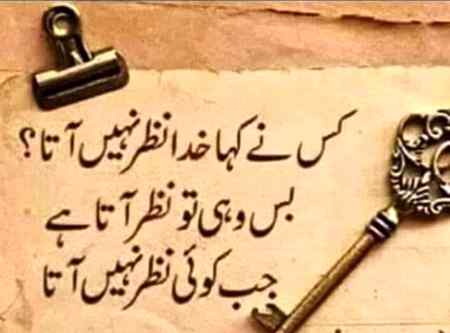 کس نے کہا خدا نظر نہیں آتا؟
بس وہی تو نظر آتا ہے
جب کوئی نظر نہیں آتا